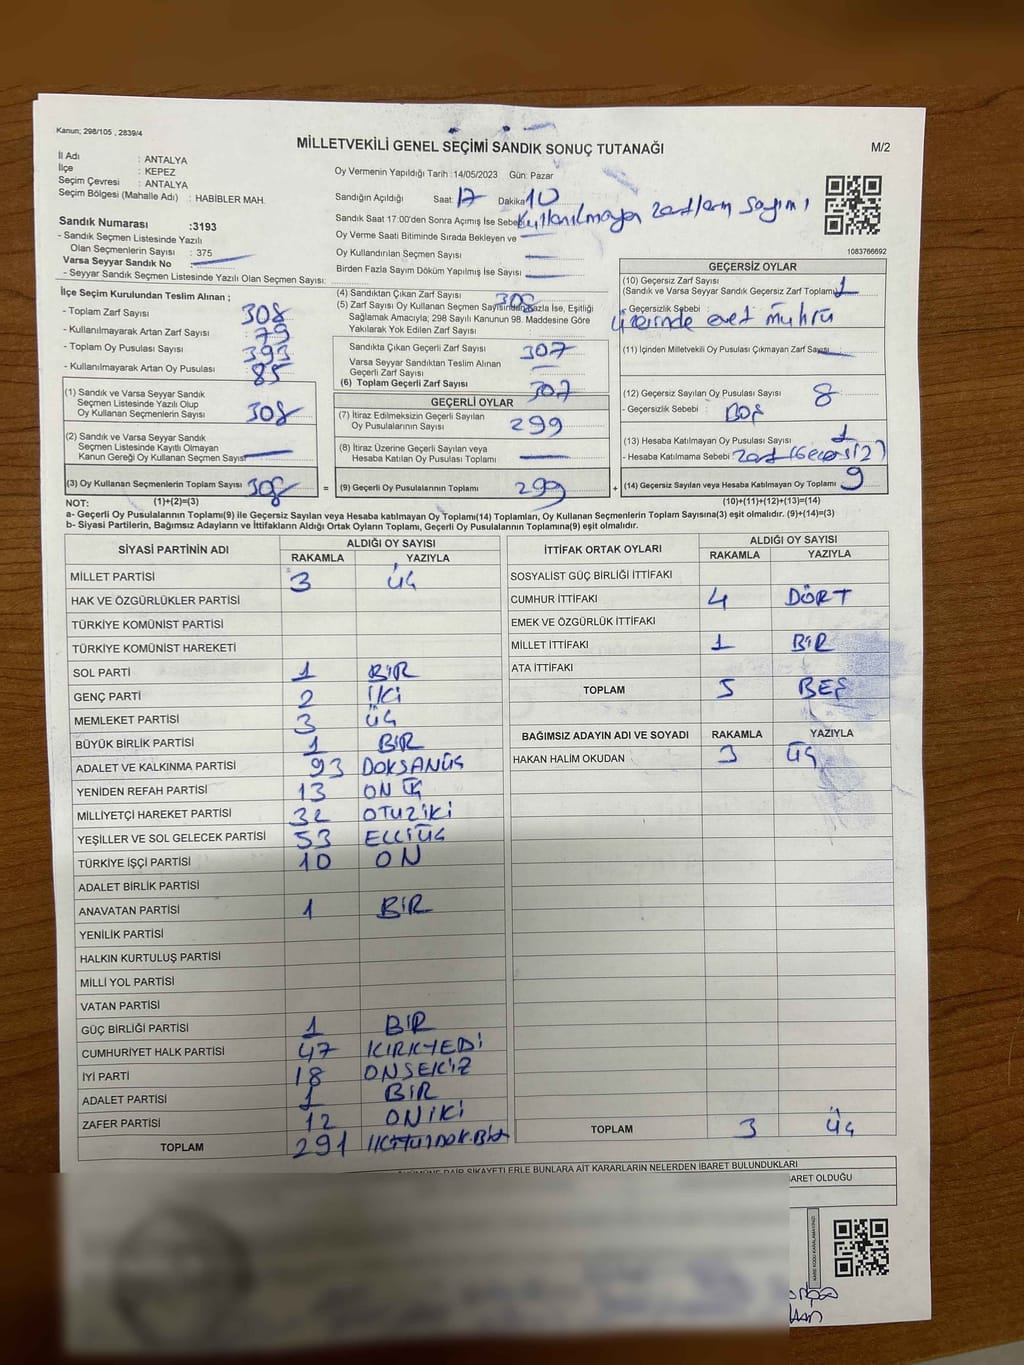 Kanun; 298/105 , 2839/4
MİLLETVEKİLİ GENEL SEÇİMİ SANDIK SONUÇ TUTANAĞI
M/2
İl Adı : ANTALYA
İlçe : KEPEZ
Seçim Çevresi : ANTALYA
Seçim Bölgesi (Mahalle Adı) : HABİBLER MAH.
Oy Vermenin Yapıldığı Tarih : 14/05/2023 Gün: Pazar
Sandığın Açıldığı Saat: 17 Dakika: 10
Sandık Saat 17:00'den Sonra Açımış İse Sebebi Kullanılmayan zarfların sayımı
Oy Verme Saati Bitiminde Sırada Bekleyen ve
Oy Kullandırılan Seçmen Sayısı
Birden Fazla Sayım Döküm Yapılmış İse Sayısı
1083766692
Sandık Numarası :3193
- Sandık Seçmen Listesinde Yazılı
Olan Seçmenlerin Sayısı : 375
Varsa Seyyar Sandık No
- Seyyar Sandık Seçmen Listesinde Yazılı Olan Seçmen Sayısı:
İlçe Seçim Kurulundan Teslim Alınan ;
- Toplam Zarf Sayısı 308
- Kullanılmayarak Artan Zarf Sayısı 79
- Toplam Oy Pusulası Sayısı 393
- Kullanılmayarak Artan Oy Pusulası 85
(1) Sandık ve Varsa Seyyar Sandık
Seçmen Listesinde Yazılı Olup
Oy Kullanan Seçmenlerin Sayısı 308
(2) Sandık ve Varsa Seyyar Sandık
Seçmen Listesinde Kayıtlı Olmayan
Kanun Gereği Oy Kullanan Seçmen Sayısı
(3) Oy Kullanan Seçmenlerin Toplam Sayısı 308
(4) Sandıktan Çıkan Zarf Sayısı 308
(5) Zarf Sayısı Oy Kullanan Seçmen Sayısından Fazla İse, Eşitliği
Sağlamak Amacıyla; 298 Sayılı Kanunun 98. Maddesine Göre
Yakılarak Yok Edilen Zarf Sayısı
Sandıkta Çıkan Geçerli Zarf Sayısı 307
Varsa Seyyar Sandıktan Teslim Alınan
Geçerli Zarf Sayısı
(6) Toplam Geçerli Zarf Sayısı 307
GEÇERLİ OYLAR
(7) İtiraz Edilmeksizin Geçerli Sayılan
Oy Pusulalarının Sayısı 299
(8) İtiraz Üzerine Geçerli Sayılan veya
Hesaba Katılan Oy Pusulası Toplamı
= (9) Geçerli Oy Pusulalarının Toplamı 299 +
GEÇERSİZ OYLAR
(10) Geçersiz Zarf Sayısı
(Sandık ve Varsa Seyyar Sandık Geçersiz Zarf Toplamı) 1
- Geçersizlik Sebebi :
üzerinde evet mührü
(11) İçinden Milletvekili Oy Pusulası Çıkmayan Zarf Sayısı
(12) Geçersiz Sayılan Oy Pusulası Sayısı 8
- Geçersizlik Sebebi : BOŞ
(13) Hesaba Katılmayan Oy Pusulası Sayısı 1
- Hesaba Katılmama Sebebi zarf (Geçersiz)
(14) Geçersiz Sayılan veya Hesaba Katılmayan Oy Toplamı 9
NOT: (1)+(2)=(3) (10)+(11)+(12)+(13)=(14)
a- Geçerli Oy Pusulalarının Toplamı(9) ile Geçersiz Sayılan veya Hesaba katılmayan Oy Toplamı(14) Toplamları, Oy Kullanan Seçmenlerin Toplam Sayısına(3) eşit olmalıdır. (9)+(14)=(3)
b- Siyasi Partilerin, Bağımsız Adayların ve İttifakların Aldığı Ortak Oyların Toplamı, Geçerli Oy Pusulalarının Toplamına(9) eşit olmalıdır.
SİYASİ PARTİNİN ADI ALDIĞI OY SAYISI
RAKAMLA YAZIYLA
MİLLET PARTİSİ 3 ÜÇ
HAK VE ÖZGÜRLÜKLER PARTİSİ
TÜRKİYE KOMÜNİST PARTİSİ
TÜRKİYE KOMÜNİST HAREKETİ
SOL PARTİ 1 BİR
GENÇ PARTİ 2 İKİ
MEMLEKET PARTİSİ 3 ÜÇ
BÜYÜK BİRLİK PARTİSİ 1 BİR
ADALET VE KALKINMA PARTİSİ 93 DOKSANÜÇ
YENİDEN REFAH PARTİSİ 13 ON ÜÇ
MİLLİYETÇİ HAREKET PARTİSİ 32 OTUZİKİ
YEŞİLLER VE SOL GELECEK PARTİSİ 53 ELLİÜÇ
TÜRKİYE İŞÇİ PARTİSİ 10 ON
ADALET BİRLİK PARTİSİ
ANAVATAN PARTİSİ 1 BİR
YENİLİK PARTİSİ
HALKIN KURTULUŞ PARTİSİ
MİLLİ YOL PARTİSİ
VATAN PARTİSİ
GÜÇ BİRLİĞİ PARTİSİ 1 BİR
CUMHURİYET HALK PARTİSİ 47 KIRKYEDİ
İYİ PARTİ 18 ONSEKİZ
ADALET PARTİSİ 1 BİR
ZAFER PARTİSİ 12 ONİKİ
TOPLAM 291
İTTİFAK ORTAK OYLARI ALDIĞI OY SAYISI
RAKAMLA YAZIYLA
SOSYALİST GÜÇ BİRLİĞİ İTTİFAKI
CUMHUR İTTİFAKI 4 DÖRT
EMEK VE ÖZGÜRLÜK İTTİFAKI
MİLLET İTTİFAKI 1 BİR
ATA İTTİFAKI
TOPLAM 5 BEŞ
BAĞIMSIZ ADAYIN ADI VE SOYADI RAKAMLA YAZIYLA
HAKAN HALİM OKUDAN 3 ÜÇ
TOPLAM 3 ÜÇ
ŞİKAYETLERLE BUNLARA AİT KARARLARIN NELERDEN İBARET BULUNDUKLARI
OLDUĞU